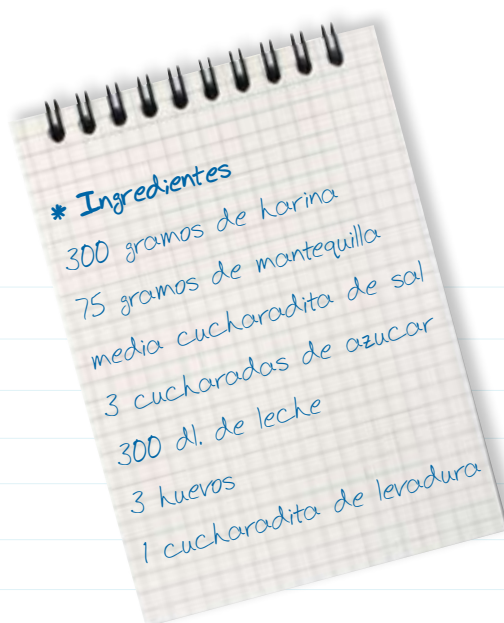 * Ingredientes
300 gramos de harina
75 gramos de mantequilla
media cucharadita de sal
3 cucharadas de azucar
300 dl. de leche
3 huevos
1 cucharadita de levadura